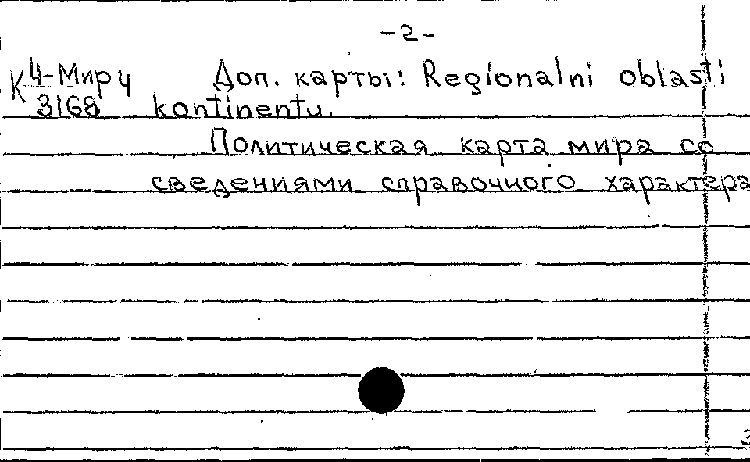 -2-
К 4-Мир 4 Доп. карты: Regionalni oblasti
3168 kontinentu.
Политическая карта мира со
сведениями справочного характера